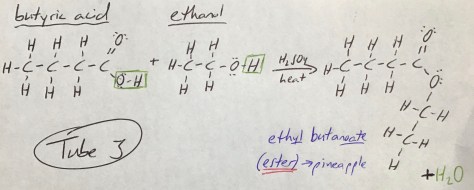 butyric acid
H H H :O:
H-C-C-C-C
H H H O-H
+
ethanol
H H
H-C-C-O-H
H H
H₂SO₄
heat
H H H :O:
H-C-C-C-C
H H H :O:
H-C-H
H-C-H
H
Tube 3
ethyl butanoate
(ester)→pineapple
+H₂O